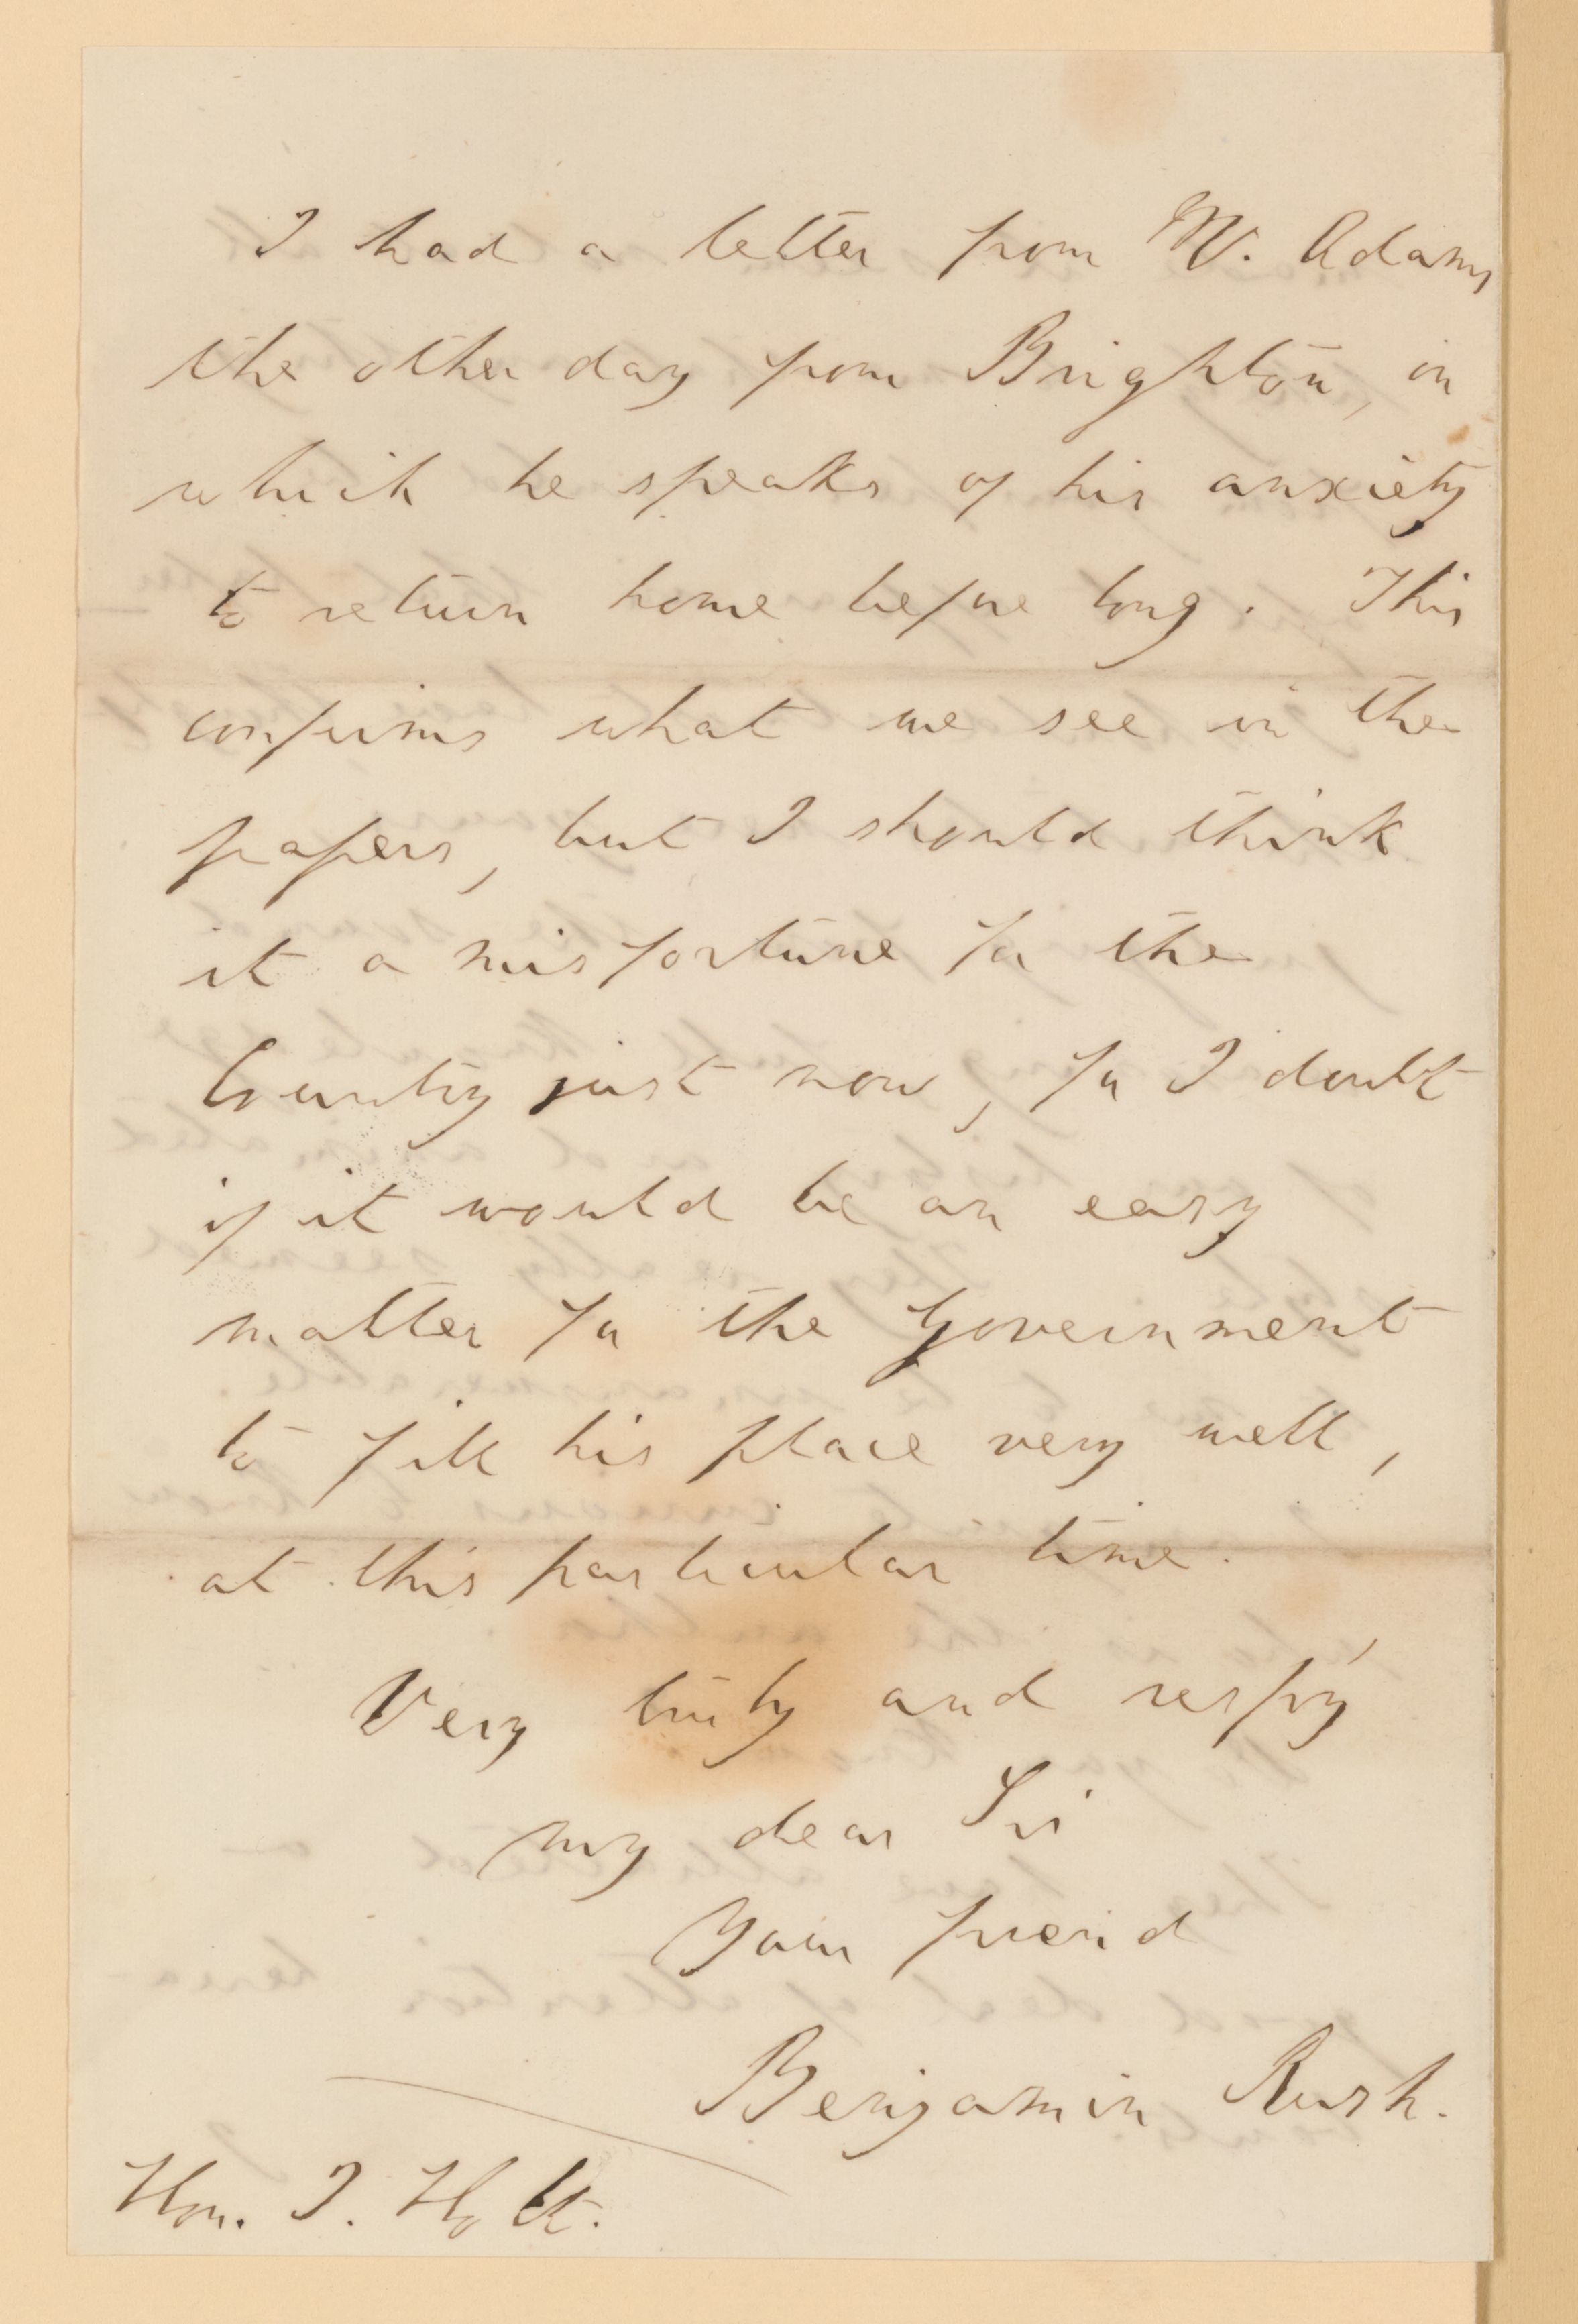 I had a letter from Mr. Adams
the other day from Brighton, in
which he speaks of his anxiety
to return home before long. This
confirms what we see in the
papers, but I should think
it a misfortune for the
Country just now, for I doubt
if it would be an easy
matter for the Government
to fill his place very well,
at this particular time.
Very truly and resp'y
my dear Sir
Your friend
Benjamin Rush.
Hon. J. Holt.